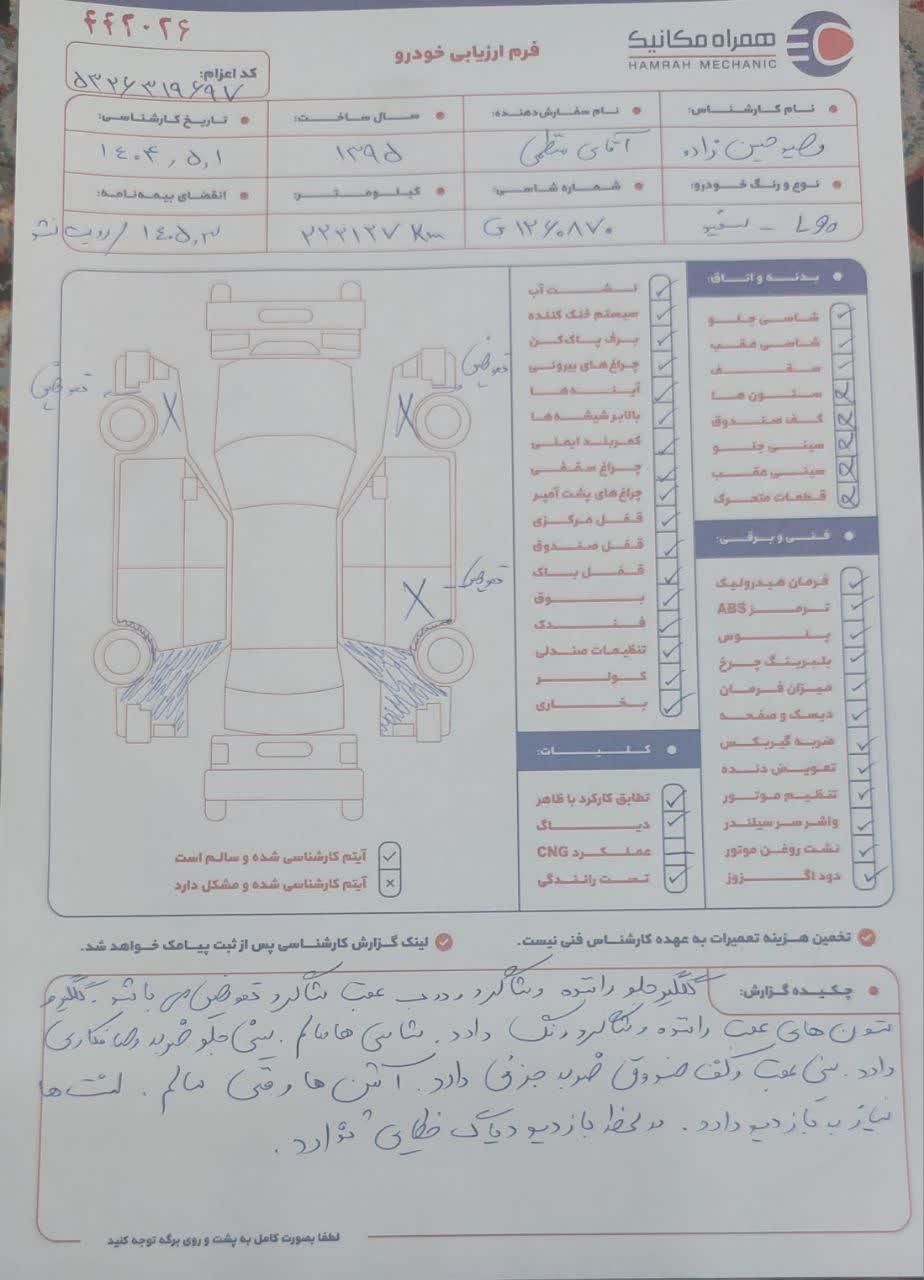 ۴۴۲۰۲۶
همراه مکانیک
HAMRAH MECHANIC
فرم ارزیابی خودرو
کد اعزام:
۵۳۲۶۳۱۹۶۹۷
نام کارشناس: نام سفارش‌دهنده: سال ساخت: تاریخ کارشناسی:
حسین زاده آقای ۱۳۹۵ ۱۴۰۴,۵,۱
نوع و رنگ خودرو: شماره شاسی: کیلومتر: انقضای بیمه‌نامه:
L90 - سفید ۱۲۶۰۸۷۰ ۲۲۲۱۲۷ Km ۱۴۰۵,۳/
بدنه و اتاق:
شاسی جلو
شاسی عقب
سقف
ستون ها
کف صندوق
سینی جلو
سینی عقب
قطعات متحرک
فنی و برقی:
فرمان هیدرولیک
ترمز ABS
پلوس
بلبرینگ چرخ
میزان فرمان
دیسک و صفحه
ضربه گیربکس
تعویض دنده
تنظیم موتور
واشر سر سیلندر
نشت روغن موتور
دود اگزوز
نشت آب
سیستم خنک کننده
برف پاک‌کن
چراغ های بیرونی
آینه‌ها
بالابر شیشه‌ها
کمربند ایمنی
چراغ سقفی
چراغ های پشت آمپر
قفل مرکزی
قفل صندوق
قفل باک
بوق
فندک
تنظیمات صندلی
کولر
بخاری
کلیات:
تطابق کارکرد با ظاهر
دیاگ
عملکرد CNG
تست رانندگی
تعویض
تعویض
تعویض
آیتم کارشناسی شده و سالم است
آیتم کارشناسی شده و مشکل دارد
تخمین هزینه تعمیرات به عهده کارشناس فنی نیست. لینک گزارش کارشناسی پس از ثبت پیامک خواهد شد.
چکیده گزارش: گلگیر جلو راننده و شاگرد و درب عقب شاگرد تعویض می باشد. گلگیر و
ستون های عقب راننده و شاگرد رنگ دارد. شاسی ها سالم. سینی جلو ضربه و صافکاری
دارد. سینی عقب و کف صندوق ضربه جزئی دارد. فنی سالم.
نیاز به بازدید دارد. در لحظه بازدید دیاگ خطایی ندارد.
لطفا بصورت کامل به پشت و روی برگه توجه کنید